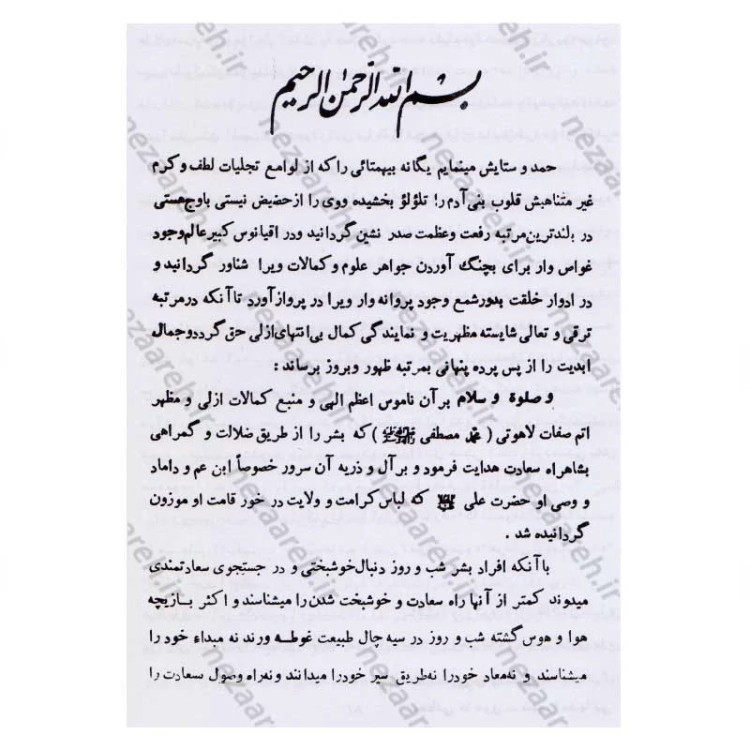 بسم الله الرحمن الرحیم
حمد و ستایش مینمایم یگانه بیهمتائی را که از لوامع تجلیات لطف و کرم
غیر متناهیش قلوب بنی آدم را تلؤلؤ بخشیده ووی را از حضیض نیستی باوج هستی
در بلندترین مرتبه رفعت وعظمت صدر نشین گردانید ودر اقیانوس کبیر عالم وجود
غواص وار برای بچنگ آوردن جواهر علوم و کمالات ویرا شناور گردانید و
در ادوار خلقت بدور شمع وجود پروانه وار ویرا در پرواز آورد تا آنکه در مرتبه
ترقی و تعالی شایسته مظهریت و نمایندگی کمال بی انتهای ازلی حق گردد و جمال
ابدیت را از پس پرده پنهانی بمرتبه ظهور وبروز برساند :
و صلوة و سلام بر آن ناموس اعظم الهی و منبع کمالات ازلی و مظهر
اتم صفات لاهوتی ( محمد مصطفی ) که بشر را از طریق ضلالت و گمراهی
بشاهراه سعادت هدایت فرمود و بر آل و ذریه آن سرور خصوصاً ابن عم و داماد
و وصی او حضرت علی که لباس کرامت و ولایت در خور قامت او موزون
گردانیده شد .
با آنکه افراد بشر شب و روز دنبال خوشبختی و در جستجوی سعادتمندی
میدوند کمتر از آنها راه سعادت و خوشبخت شدن را میشناسند و اکثر بازیچه
هوا و هوس گشته شب و روز در سیه چال طبیعت غوطه ورند نه مبداء خود را
میشناسند و نه معاد خود را نه طریق سیر خود را میدانند و نه راه وصول سعادت را
nezaareh.ir